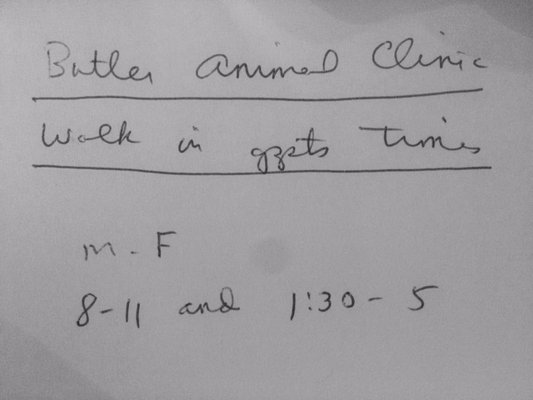 Butler Animal Clinic
Walk in appts times
M - F
8-11 and 1:30 - 5